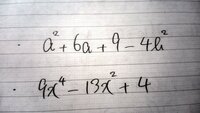 · a² + 6a + 9 - 4b²
· 9x⁴ - 13x² + 4